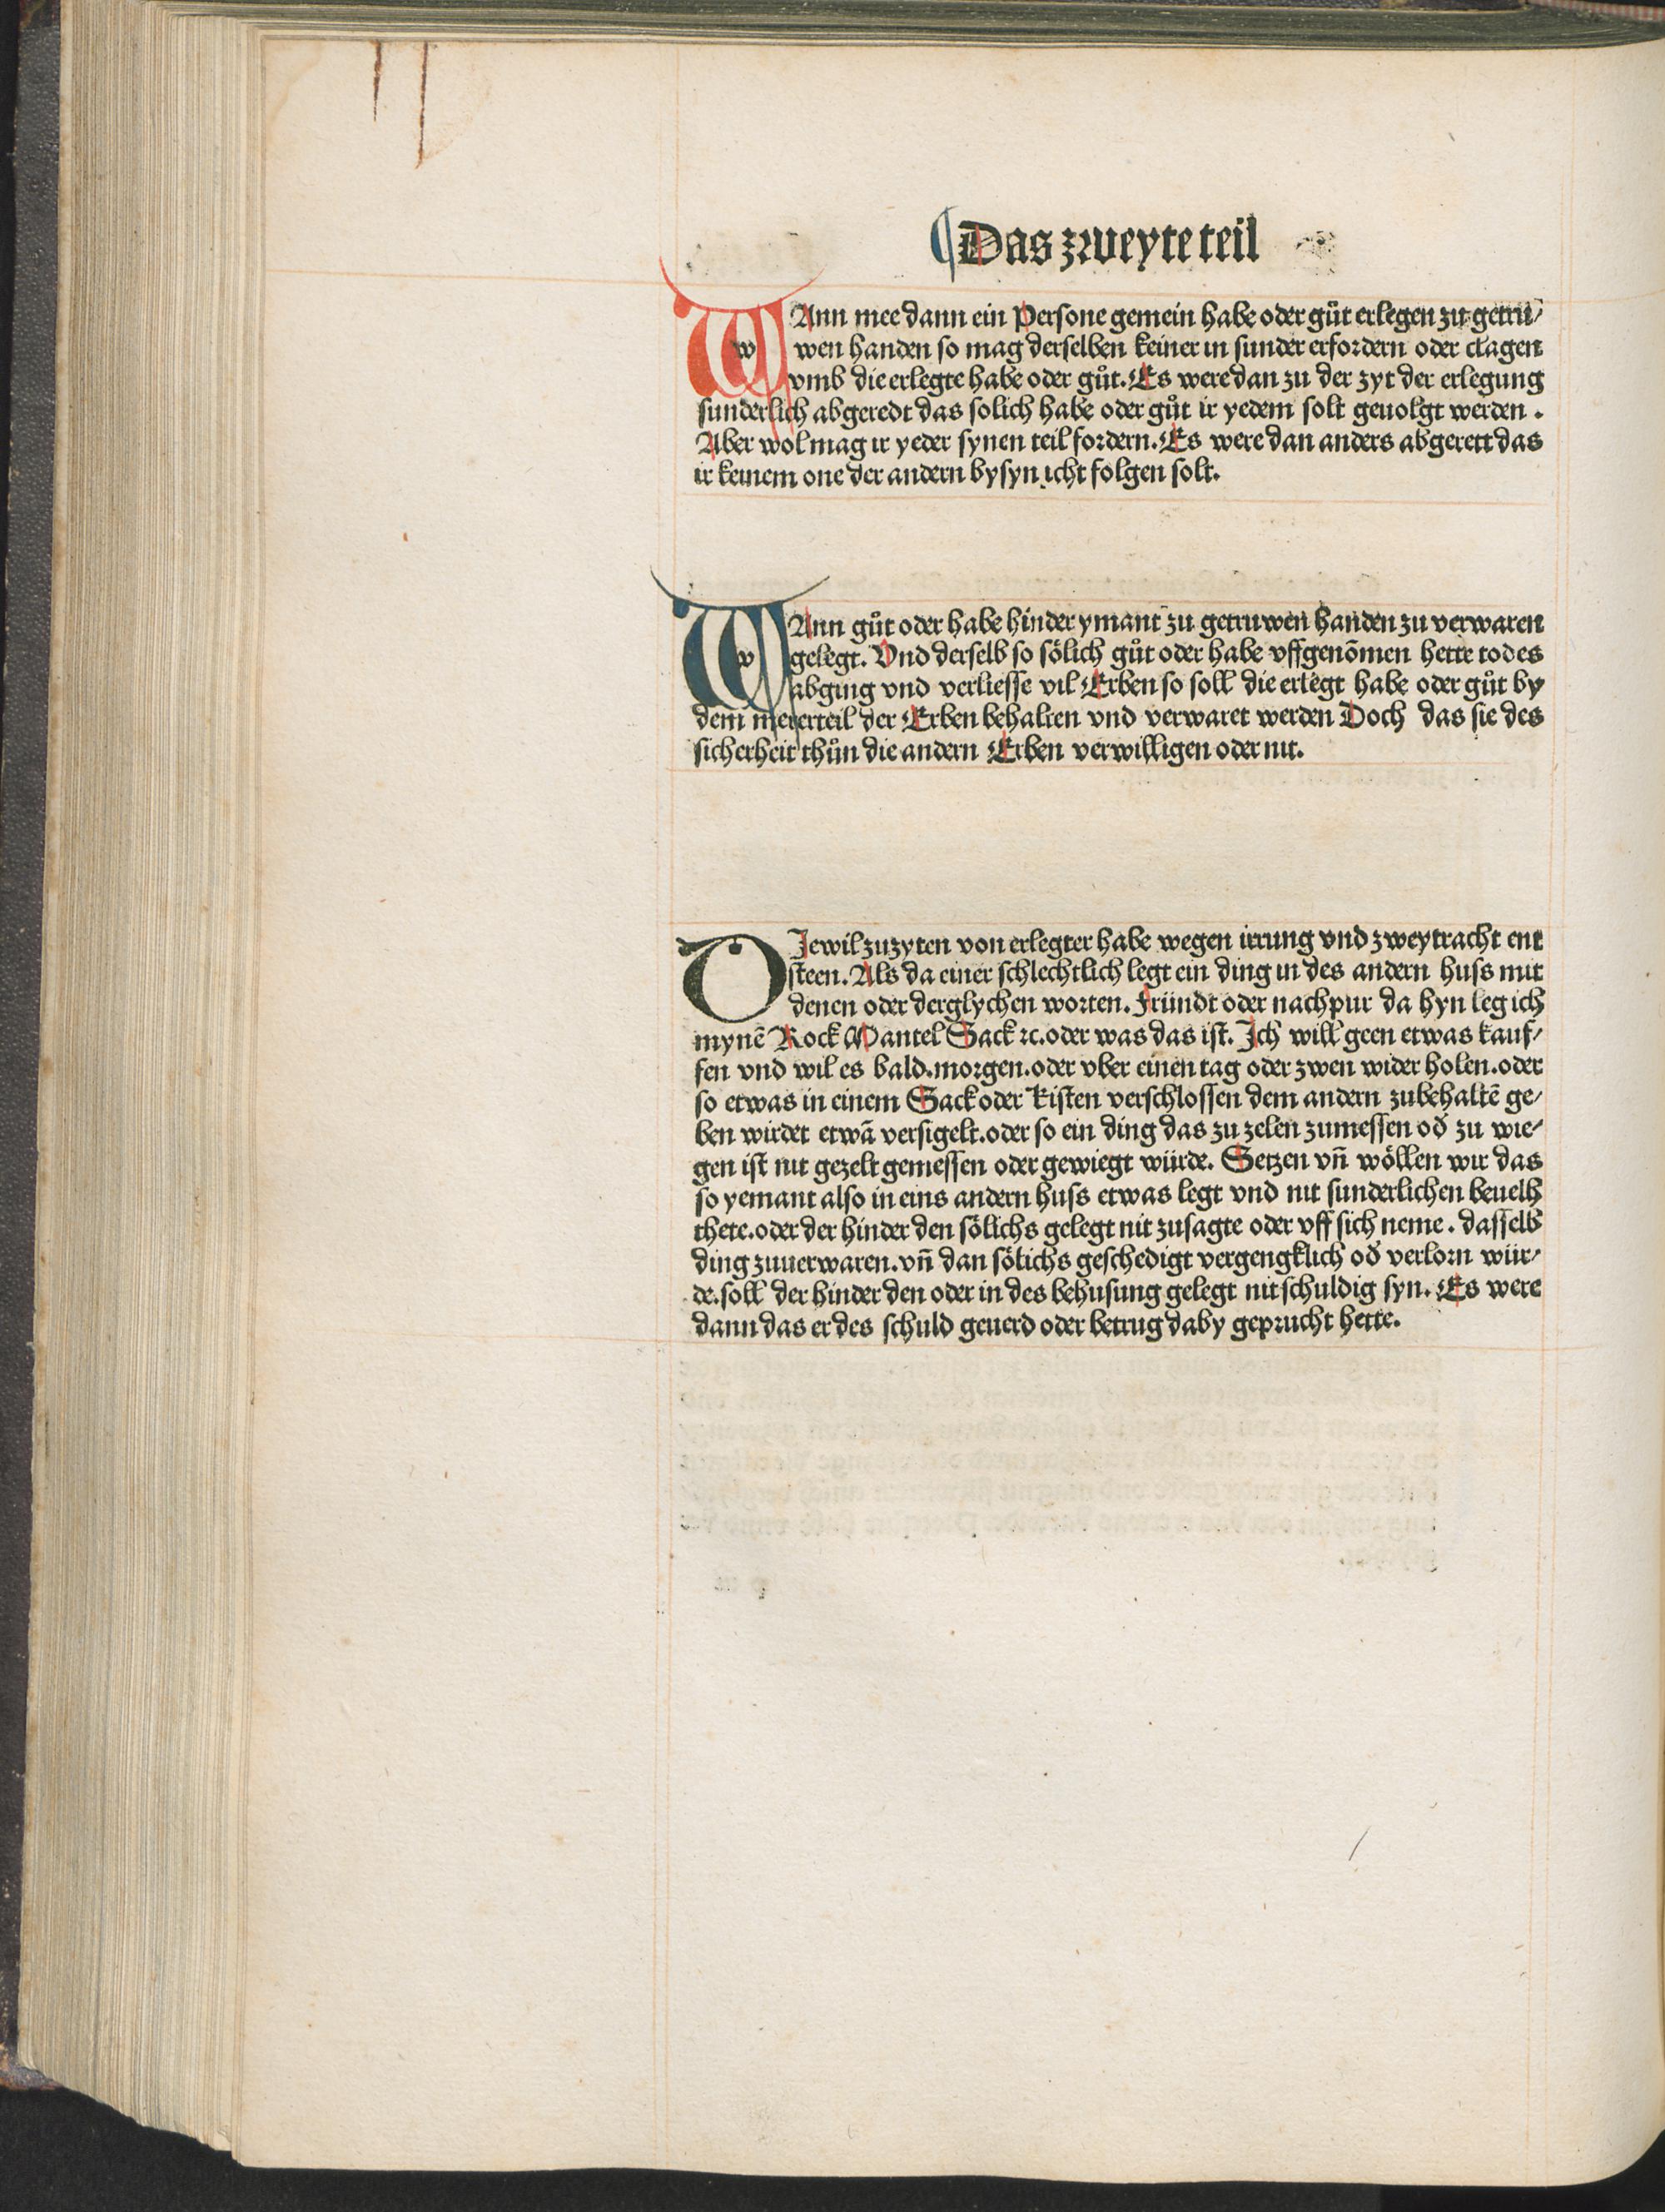 Das zweyte teil
WAnn mee dann ein Persone gemein habe oder gůt erlegen zu getrü⸗
wen handen so mag derselben keiner in sunder erfordern oder clagen
vmb die erlegte habe oder gůt. Es were dan zu der zyt der erlegung
sunderlich abgeredt das solich habe oder gůt ir yedem solt geuolgt werden.
Aber wol mag ir yeder synen teil fordern. Es were dan anders abgerett das
ir keinem one der andern bysyn icht folgen solt.
WAnn gůt oder habe hinder ymant zu getruwen handen zu verwaren
gelegt. Vnd derselb so sölich gůt oder habe vffgenōmen hette todes
abging vnd verliesse vil Erben so soll die erlegt habe oder gůt by
dem mererteil der Erben behalten vnd verwaret werden Doch das sie des
sicherheit thůn die andern Erben verwilligen oder nit.
DJewil zuzyten von erlegter habe wegen irrung vnd zweytracht ent
steen. Als da einer schlechtlich legt ein ding in des andern huss mit
denen oder derglychen worten. fründt oder nachpur da hyn leg ich
mynē Rock Mantel Sack ꝛc. oder was das ist. Jch will geen etwas kauf⸗
fen vnd wil es bald. morgen. oder vber einen tag oder zwen wider holen. oder
so etwas in einem Sack oder kisten verschlossen dem andern zubehaltē ge⸗
ben wirdet etwā versigelt. oder so ein ding das zu zelen zumessen od̕ zu wie⸗
gen ist nit gezelt gemessen oder gewiegt würde. Setzen vn̄ wöllen wir das
so yemant also in eins andern huss etwas legt vnd nit sunderlichen beuelh
thete. oder der hinder den sölichs gelegt nit zusagte oder vff sich neme. dasselb
ding zuuerwaren. vn̄ dan sölichs geschedigt vergengklich od̕ verlorn wür⸗
de. soll der hinder den oder in des behusung gelegt nit schuldig syn. Es were
dann das er des schuld geuerd oder betrug daby geprucht hette.